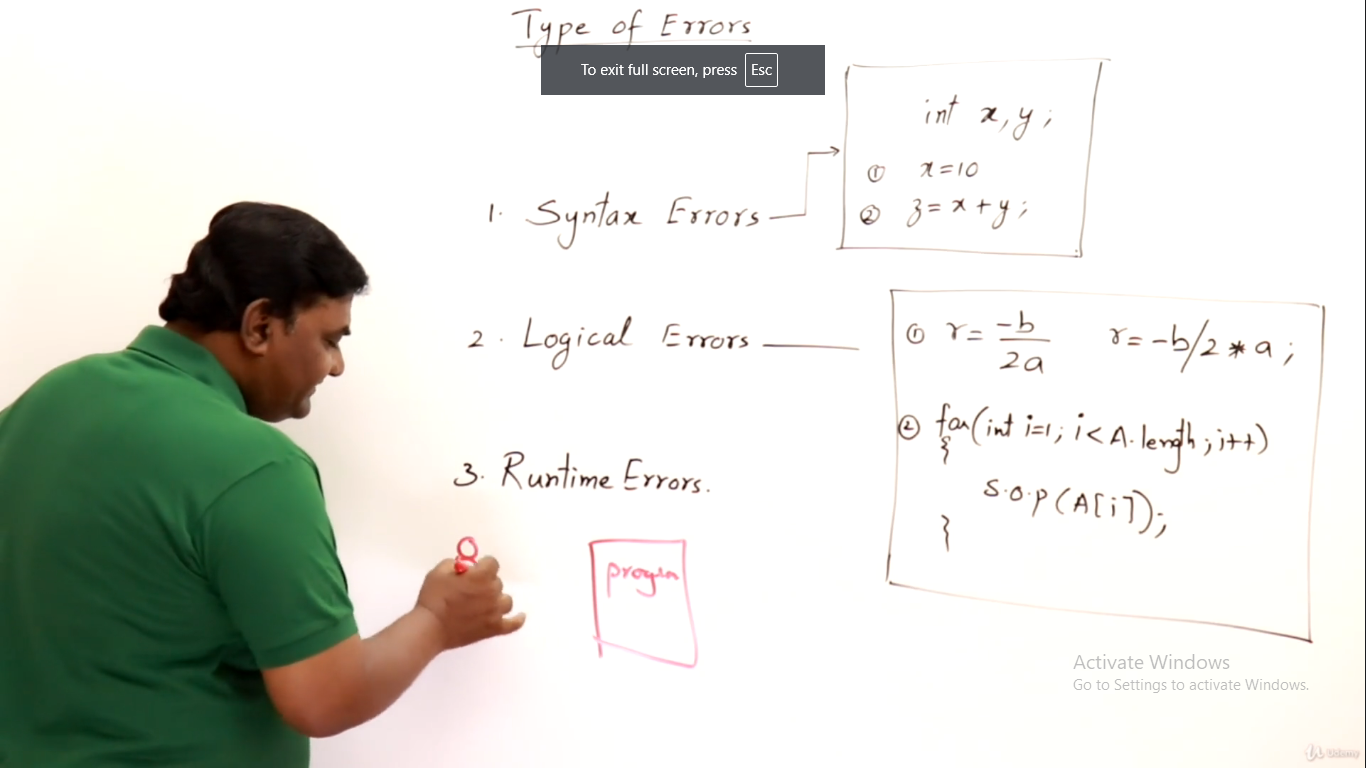 Type of Errors
To exit full screen, press Esc
int x, y;
① x=10
② z= x+y;
1. Syntax Errors
2. Logical Errors
① r= -b
2a
r= -b/2 * a;
② for(int i=1; i<A.length; i++)
{
S.O.P(A[i]);
}
3. Runtime Errors.
Activate Windows
Go to Settings to activate Windows.
Udemy